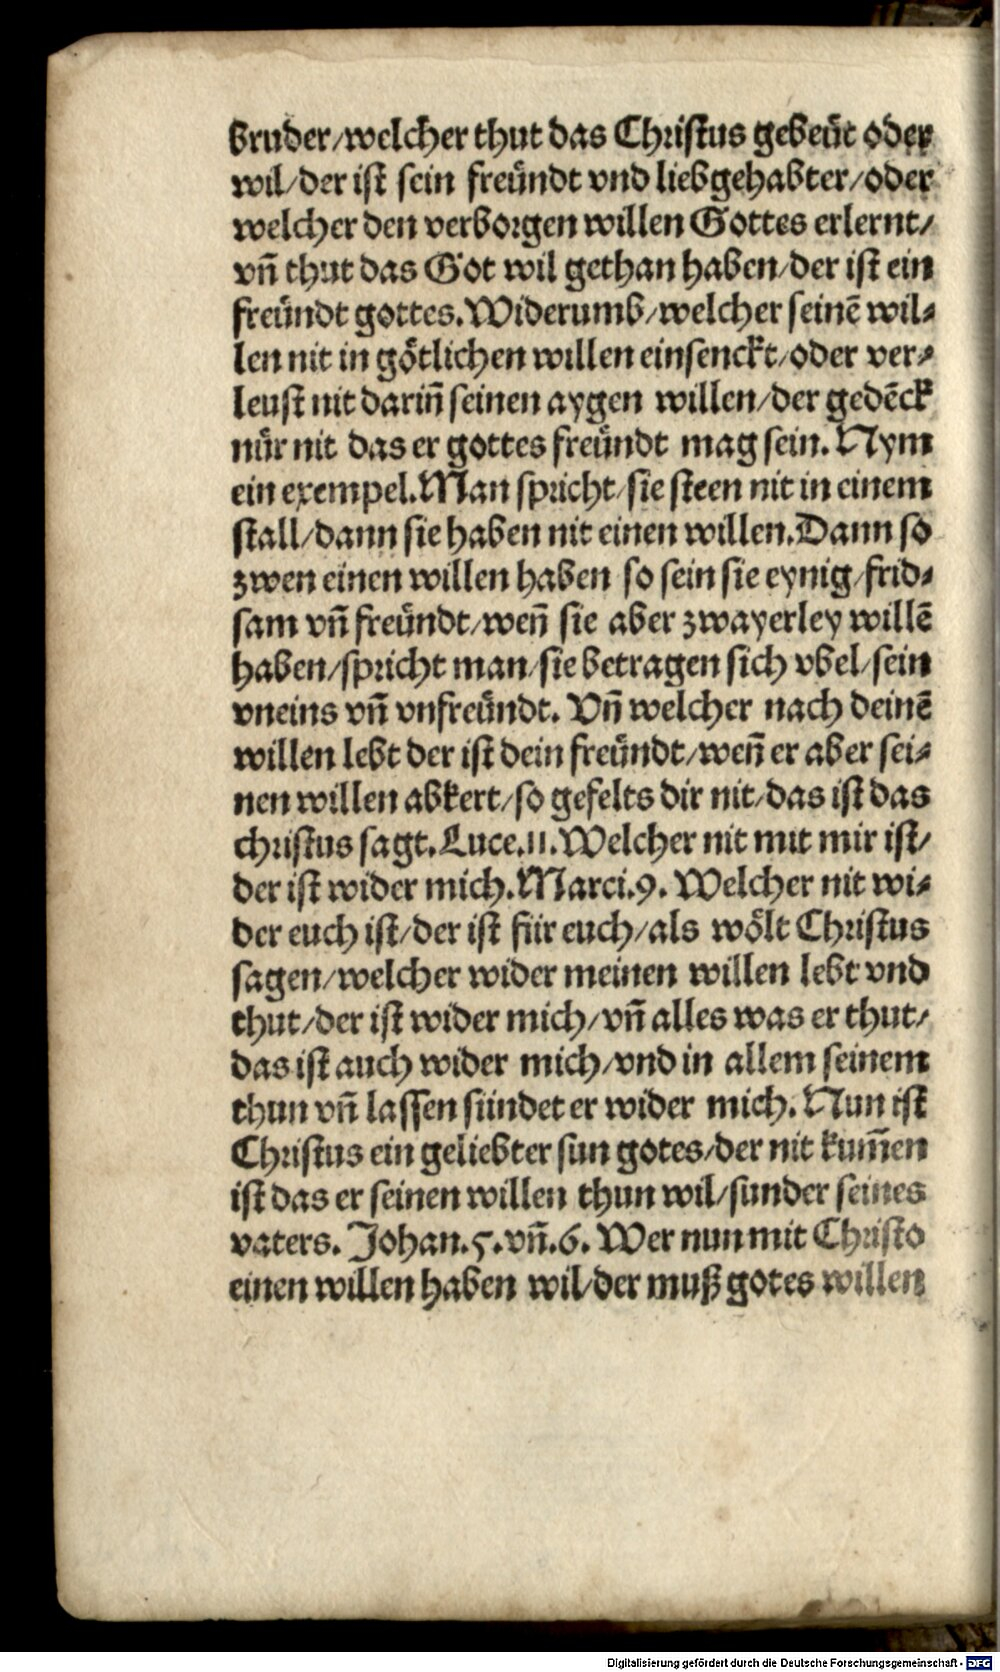 bruder/welcher thut das Christus gebeüt oder
wil/der ist sein freündt vnd liebgehabter/oder
welcher den verborgen willen Gottes erlernt/
vñ thut das Got wil gethan haben/der ist ein
freündt gottes. Widerumb/welcher seinẽ wil⸗
len nit in götlichen willen einsenckt/oder ver⸗
leust nit dariñ seinen aygen willen/der gedẽck
nür nit das er gottes freündt mag sein. Nym
ein exempel. Man spricht/sie steen nit in einem
stall/dann sie haben nit einen willen. Dann so
zwen einen willen haben so sein sie eynig/frid⸗
sam vñ freündt/weñ sie aber zwayerley willẽ
haben/spricht man/sie betragen sich vbel/sein
vneins vñ vnfreündt. Vñ welcher nach deinẽ
willen lebt der ist dein freündt/weñ er aber sei⸗
nen willen abkert/so gefelts dir nit/das ist das
christus sagt. Luce.11. Welcher nit mit mir ist/
der ist wider mich. Marci.9. Welcher nit wi⸗
der euch ist/der ist für euch/als wölt Christus
sagen/welcher wider meinen willen lebt vnd
thut/der ist wider mich/vñ alles was er thut/
das ist auch wider mich/vnd in allem seinem
thun vñ lassen sündet er wider mich. Nun ist
Christus ein geliebter sun gotes/der nit kum̃en
ist das er seinen willen thun wil/sunder seines
vaters. Johan.5.vñ.6. Wer nun mit Christo
einen willen haben wil/der muß gotes willen
Digitalisierung gefördert durch die Deutsche Forschungsgemeinschaft - DFG